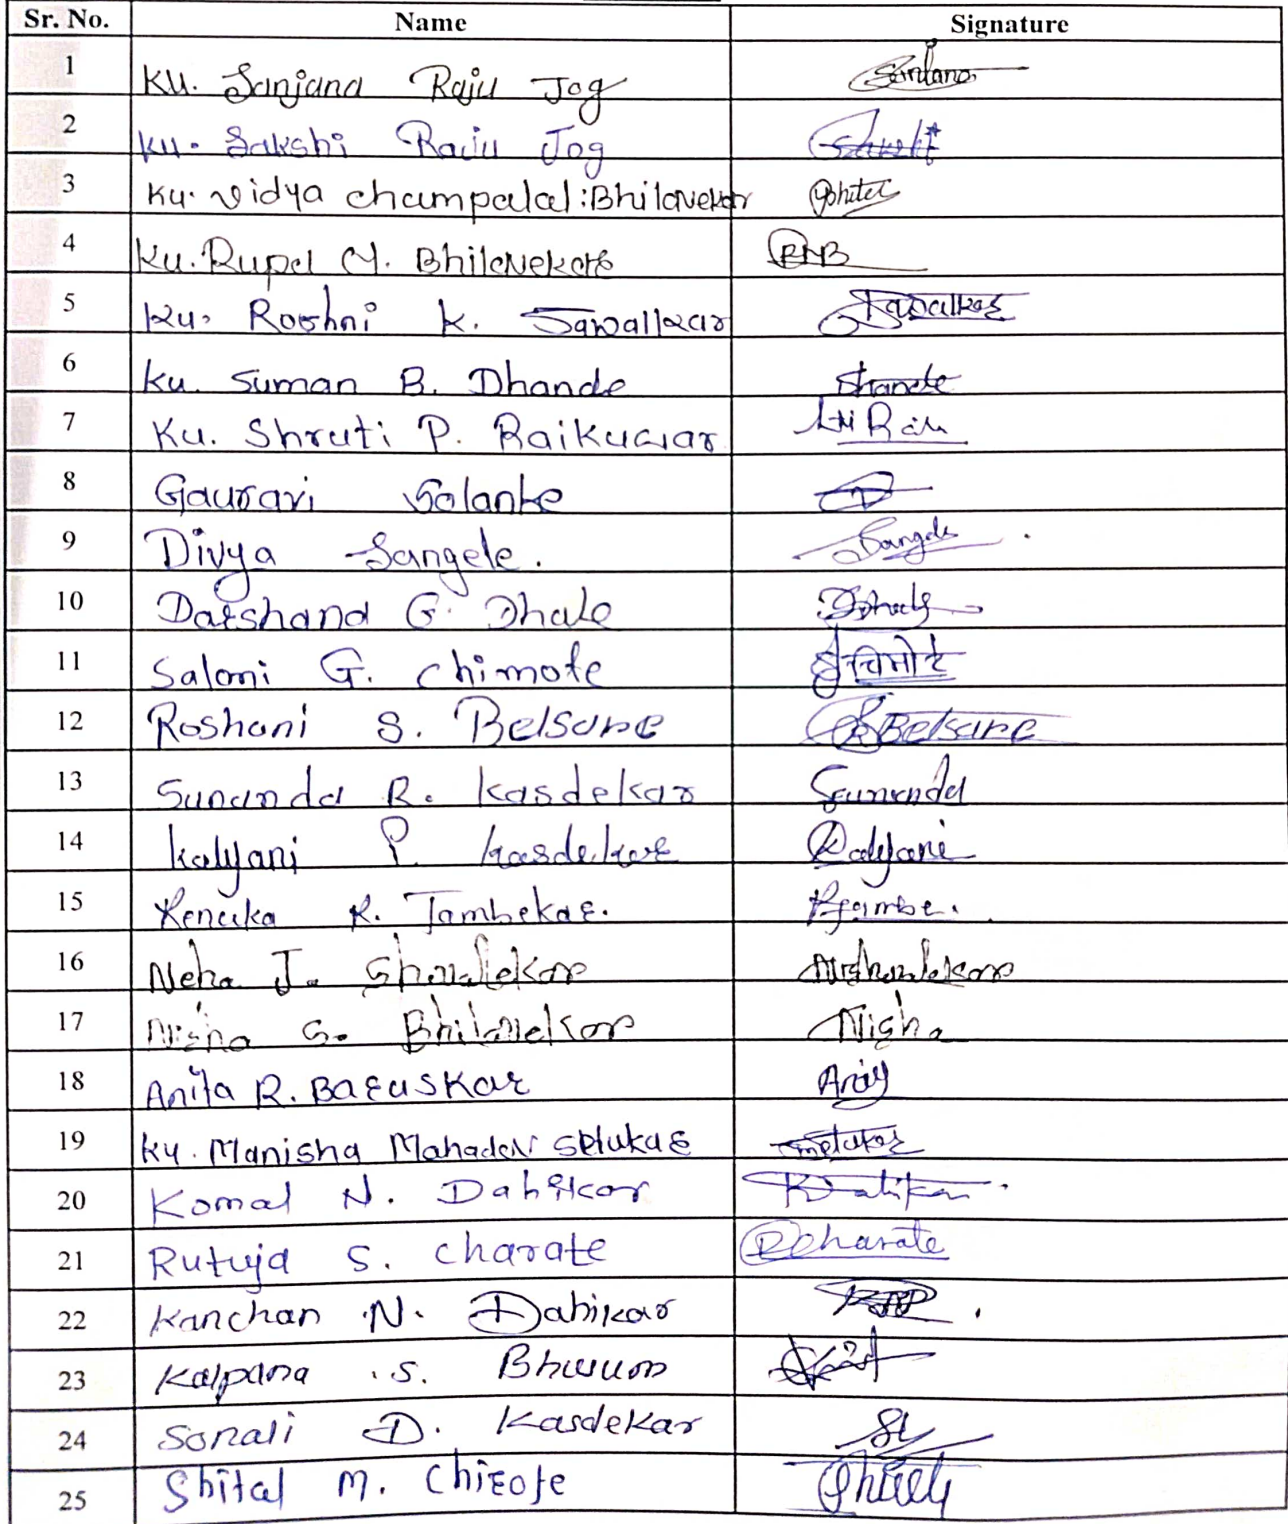 Sr. No. Name Signature
1 Ku. Sanjana Raju Jog Sanjana
2 Ku. Sakshi Raju Jog
3 Ku. Vidya champalal Bhilavekar
4 Ku. Rupal M. Bhilavekar RMB
5 Ku. Roshni K. Sawalkar Sawalkar
6 Ku. Suman B. Dhande Dhande
7 Ku. Shruti P. Raikuwar
8 Gauravi Solanke
9 Divya Sangele. Sangele
10 Darshana G. Dhale
11 Saloni G. Chimote चिमोटे
12 Roshani S. Belsare Belsare
13 Sunanda R. Kasdekar Sunanda
14 Kalyani P. Kasdekar Kalyani
15 Renuka R. Tambekar.
16 Neha J. Shevalekar
17 Nisha G. Bhilavekar Nisha
18 Anita R. Baruskar
19 Ku. Manisha Mahadev Selukar
20 Komal N. Dahikar
21 Rutuja S. Charate RCharate
22 Kanchan N. Dahikar
23 Kalpana S.
24 Sonali D. Kasdekar
25 Shital M. Chirote